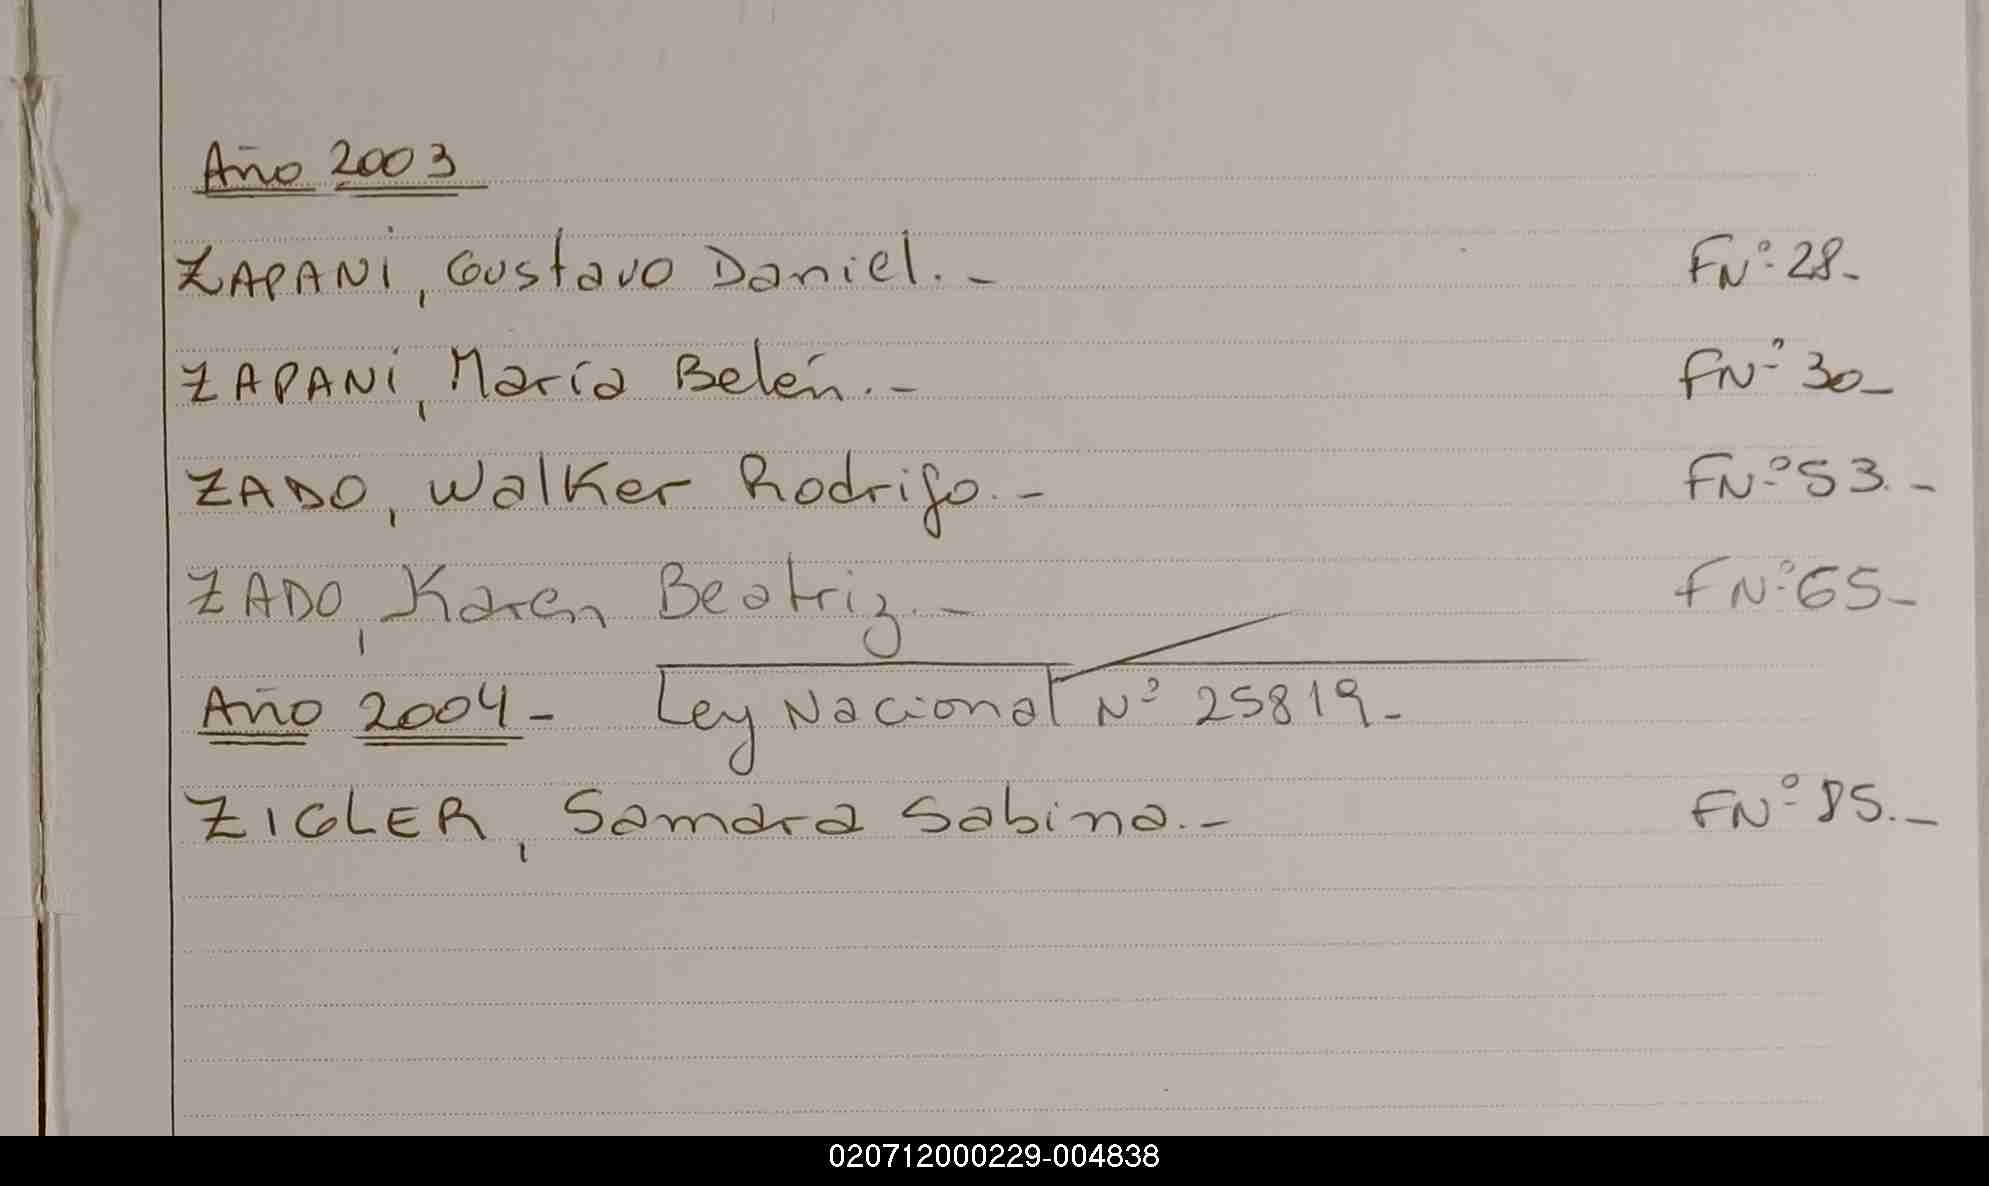 Año 2003
ZAPANI, Gustavo Daniel.- FNº 28-
ZAPANI, María Belén.- FNº 30-
ZADO, Walker Rodrigo.- FNº 53.-
ZADO, Karen Beatriz.- FNº 65-
Año 2004- Ley Nacional Nº 25819-
ZIGLER, Samara Sabina.- FNº 85.-
020712000229-004838